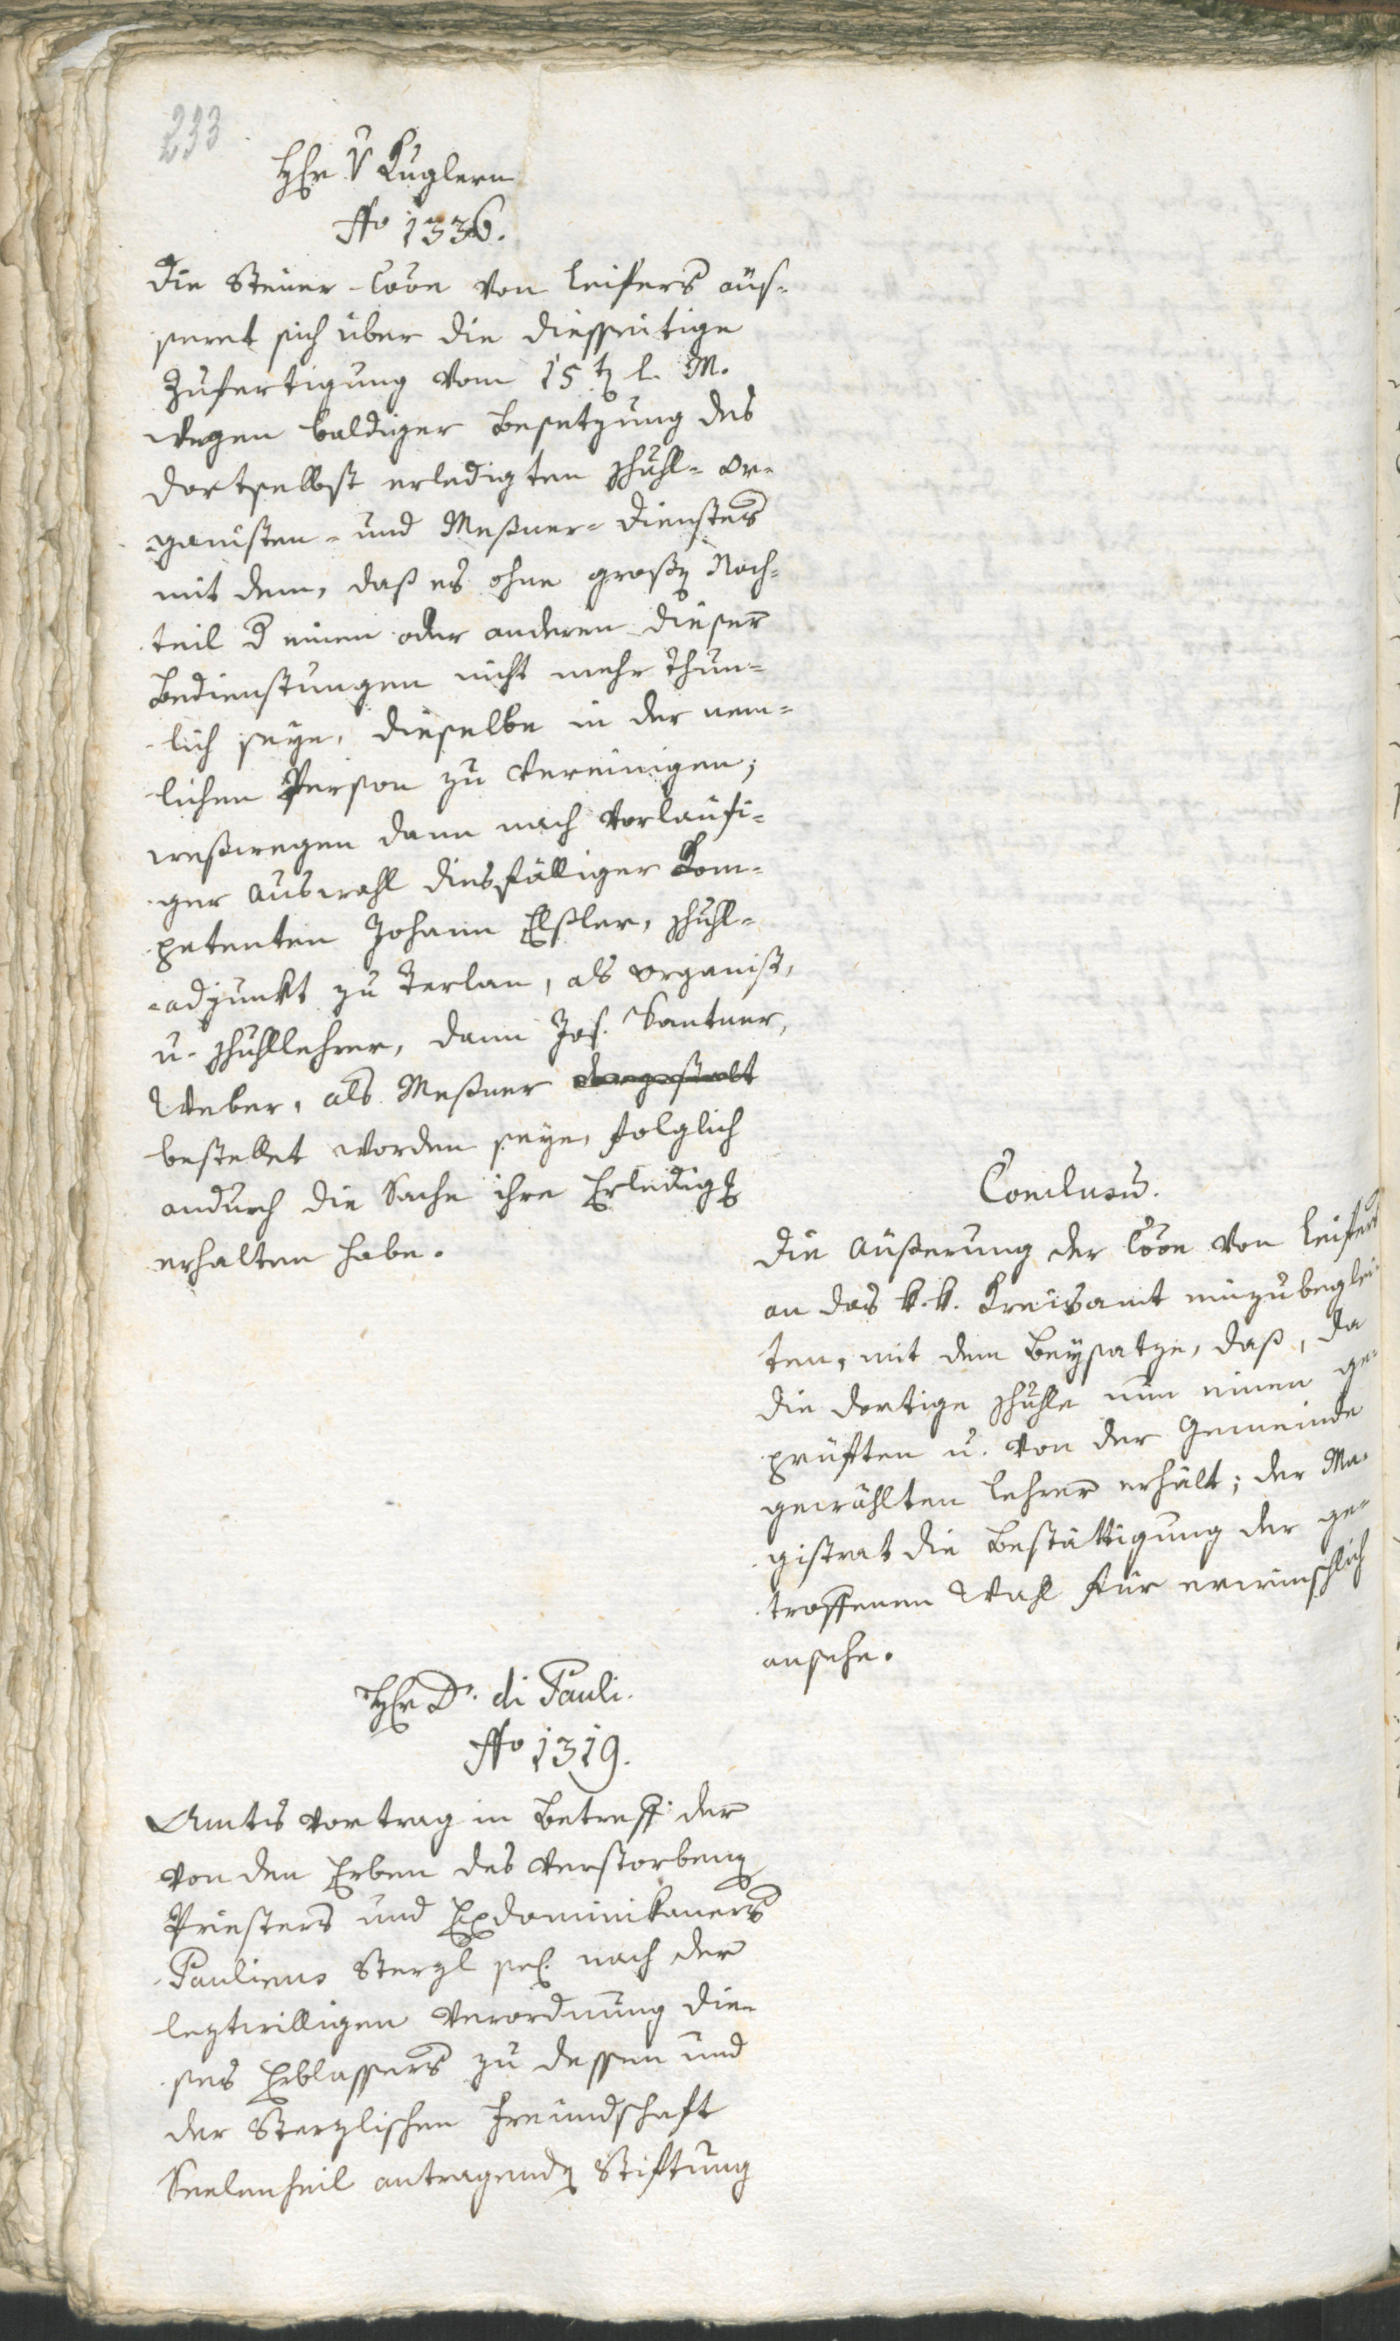 233
Hr V Kuglern
No 1336.
Die Steuer-Coõn von Leifers äus-
seret sich über die diesseitige
Zufertigung vom 15t l. M.
wegen baldiger Besetzung des
dortselbst erledigten Schuhl- Or-
ganisten- und Meßner-Dienstes
mit dem, daß es ohne großen Nach-
teil d einem oder anderen dieser
Bedienstungen nicht mehr thun-
lich seye, dieselbe in der nem-
lichen Person zu vereinigen;
weßwegen dann nach vorläufi-
ger Auswahl diesfälliger Kom-
petenten Johann Elsler, Schuhl-
adjunkt zu Terlan, als Organist,
u. Schuhllehrer, dann Jos. Santner,
Weber, als Meßner dargestelt
bestellet worden seye, folglich
andurch die Sache ihre Erledigung
erhalten habe.
Conclusum.
Die Äußerung der Coõn von Leifers
an das k.k. Kreisamt einzubeglei-
ten, mit dem Beysatze, daß, da
die dortige Schuhle nun einen ge-
prüften u. von der Gemeinde
gewählten Lehrer erhält; der Ma-
gistrat die Bestättigung der ge-
troffenen Wahl für erwünschlich
ansehe.
Hr Dr. di Pauli.
No 1319.
Amts Vortrag in Betreff der
von den Erben des verstorbenen
Priesters und Exdominikaners
Paulinus Sterzl sel. nach der
leztwilligen Verordnung die-
ses Erblassers zu dessen und
der Sterzlischen Freundschaft
Seelenheil antragenden Stiftung